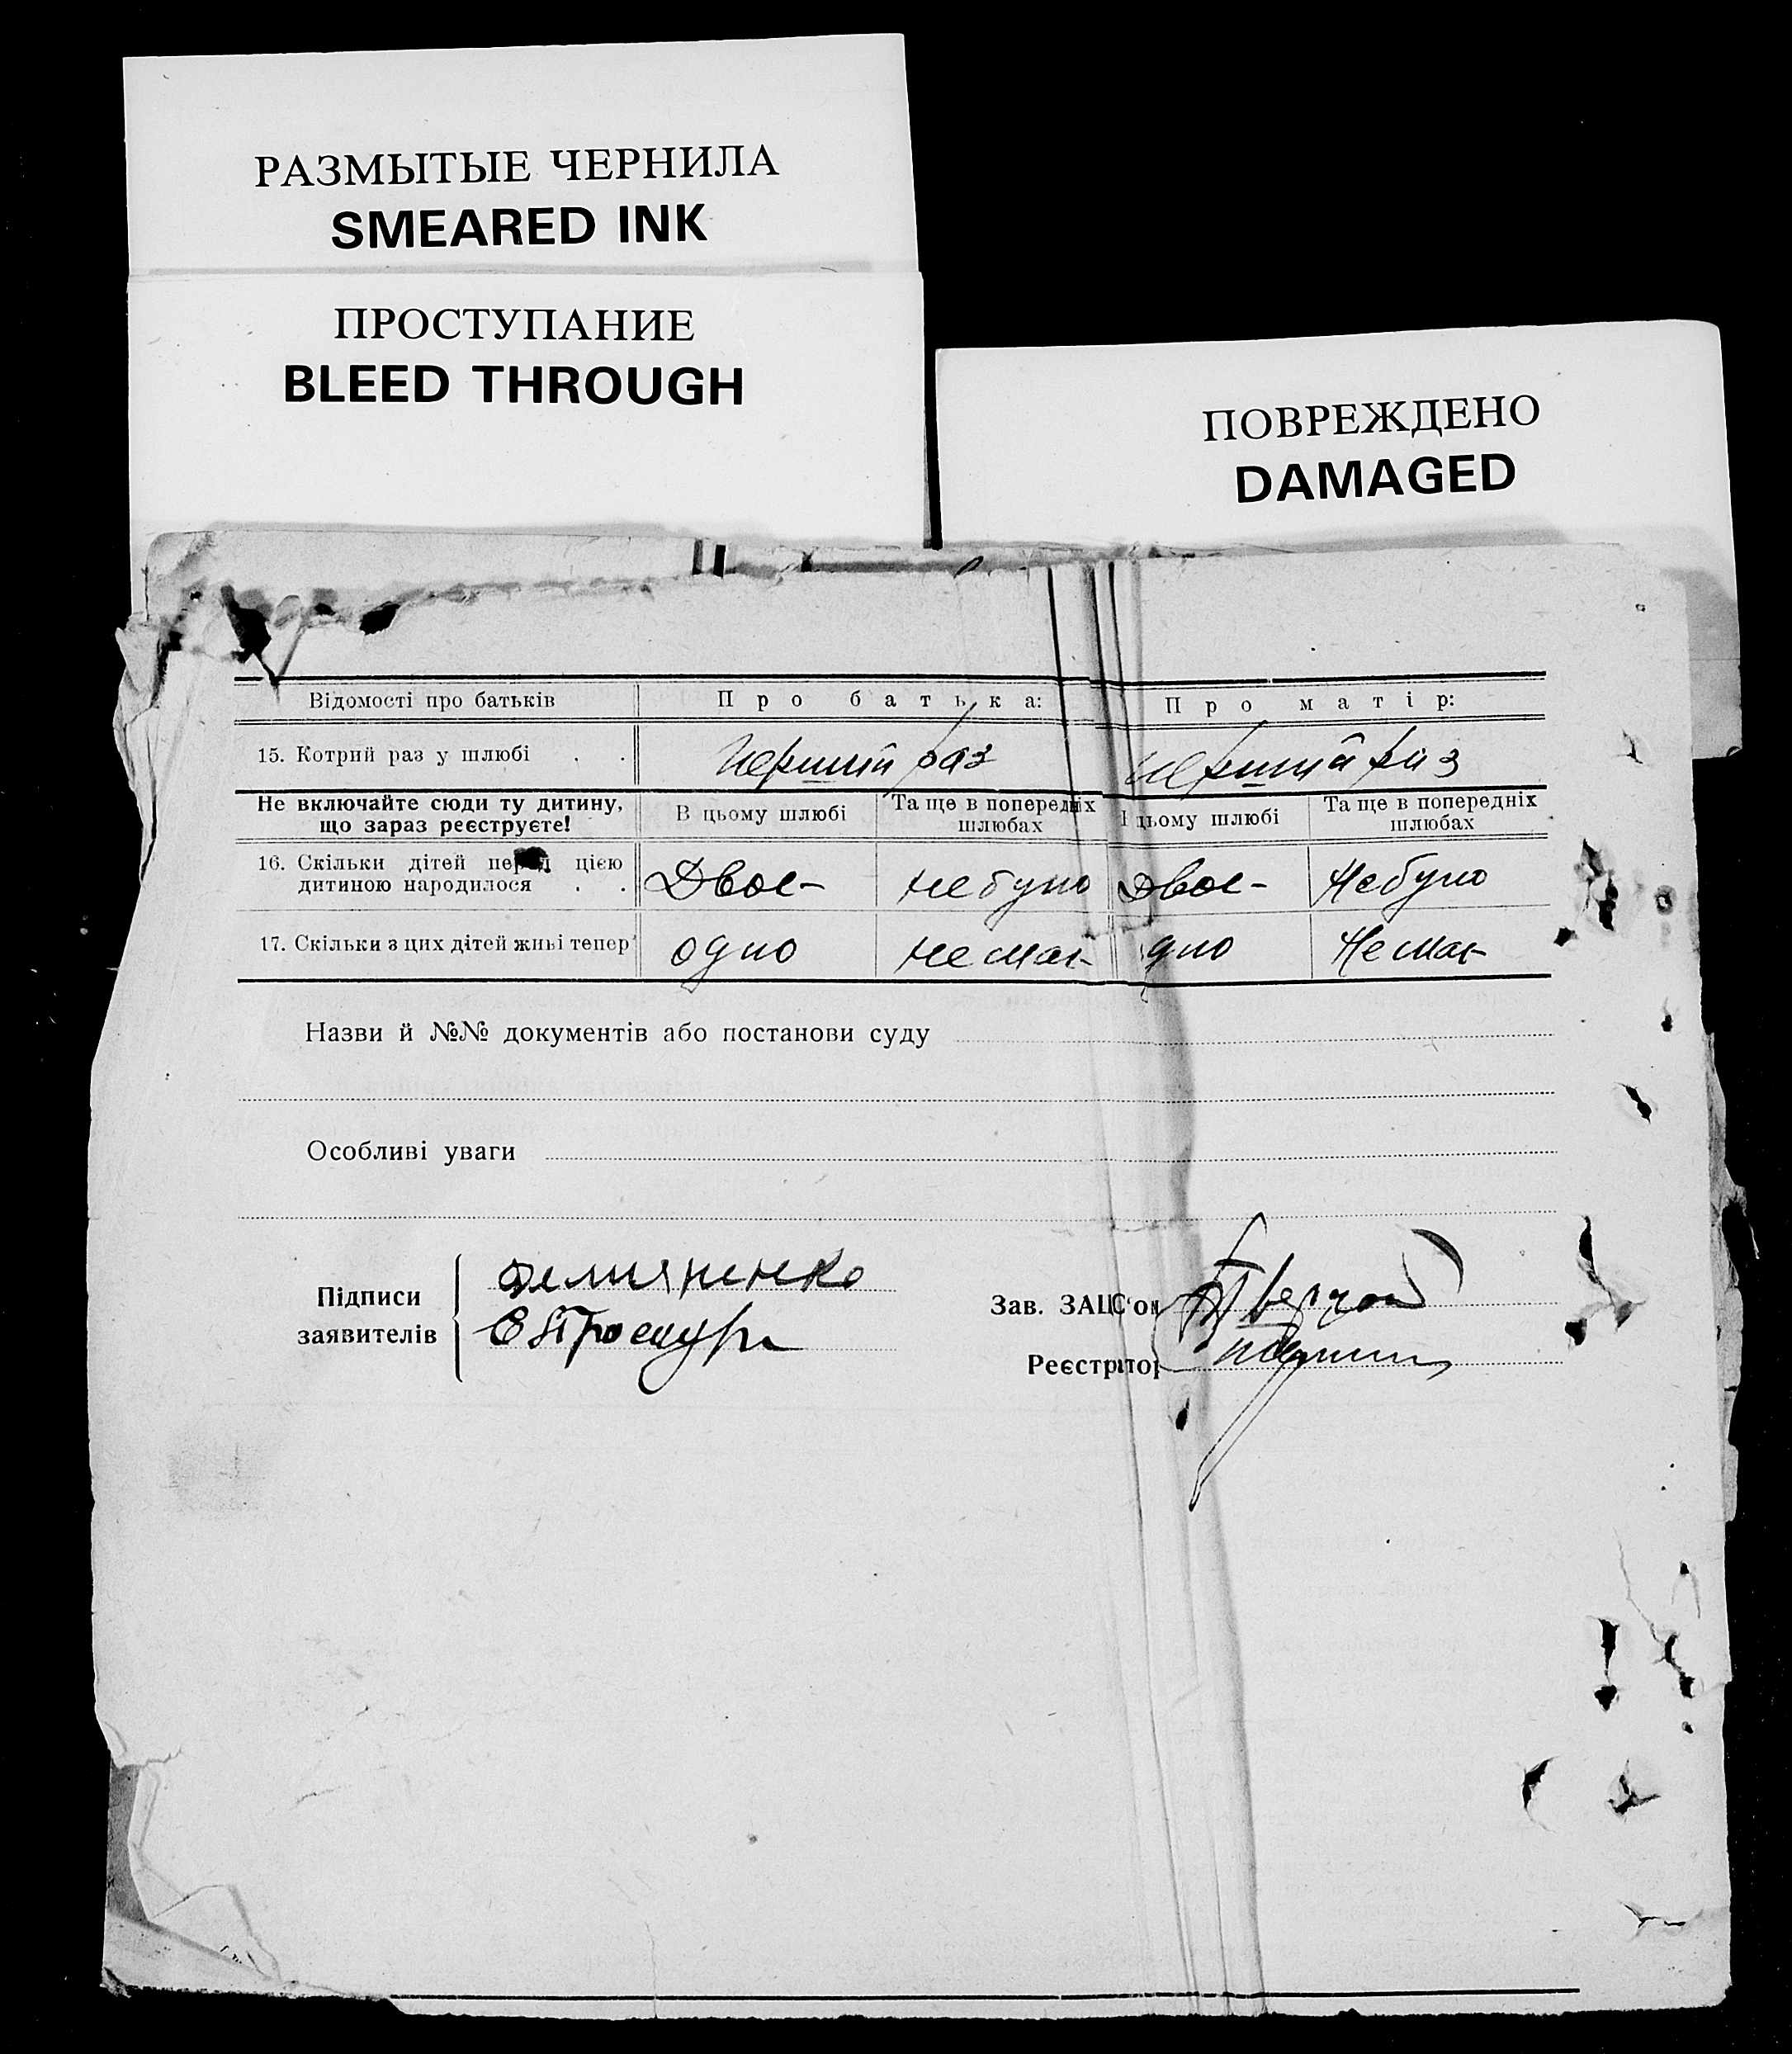 РАЗМЫТЫЕ ЧЕРНИЛА
SMEARED INK
ПРОСТУПАНИЕ
BLEED THROUGH
ПОВРЕЖДЕНО
DAMAGED
Відомості про батьків Про батька: Про матір:
15. Котрий раз у шлюбі . . перший раз перший раз
Не включайте сюди ту дитину, що зараз реєструєте! В цьому шлюбі Та ще в попередніх шлюбах В цьому шлюбі Та ще в попередніх шлюбах
16. Скільки дітей перед цією дитиною народилося . . Двоє не було двоє Не було
17. Скільки з цих дітей живі тепер одно немає дно Немає
Назви й №№ документів або постанови суду
Особливі уваги
Підписи
заявителів
Зав. ЗАЦС'ом
Реєстратор